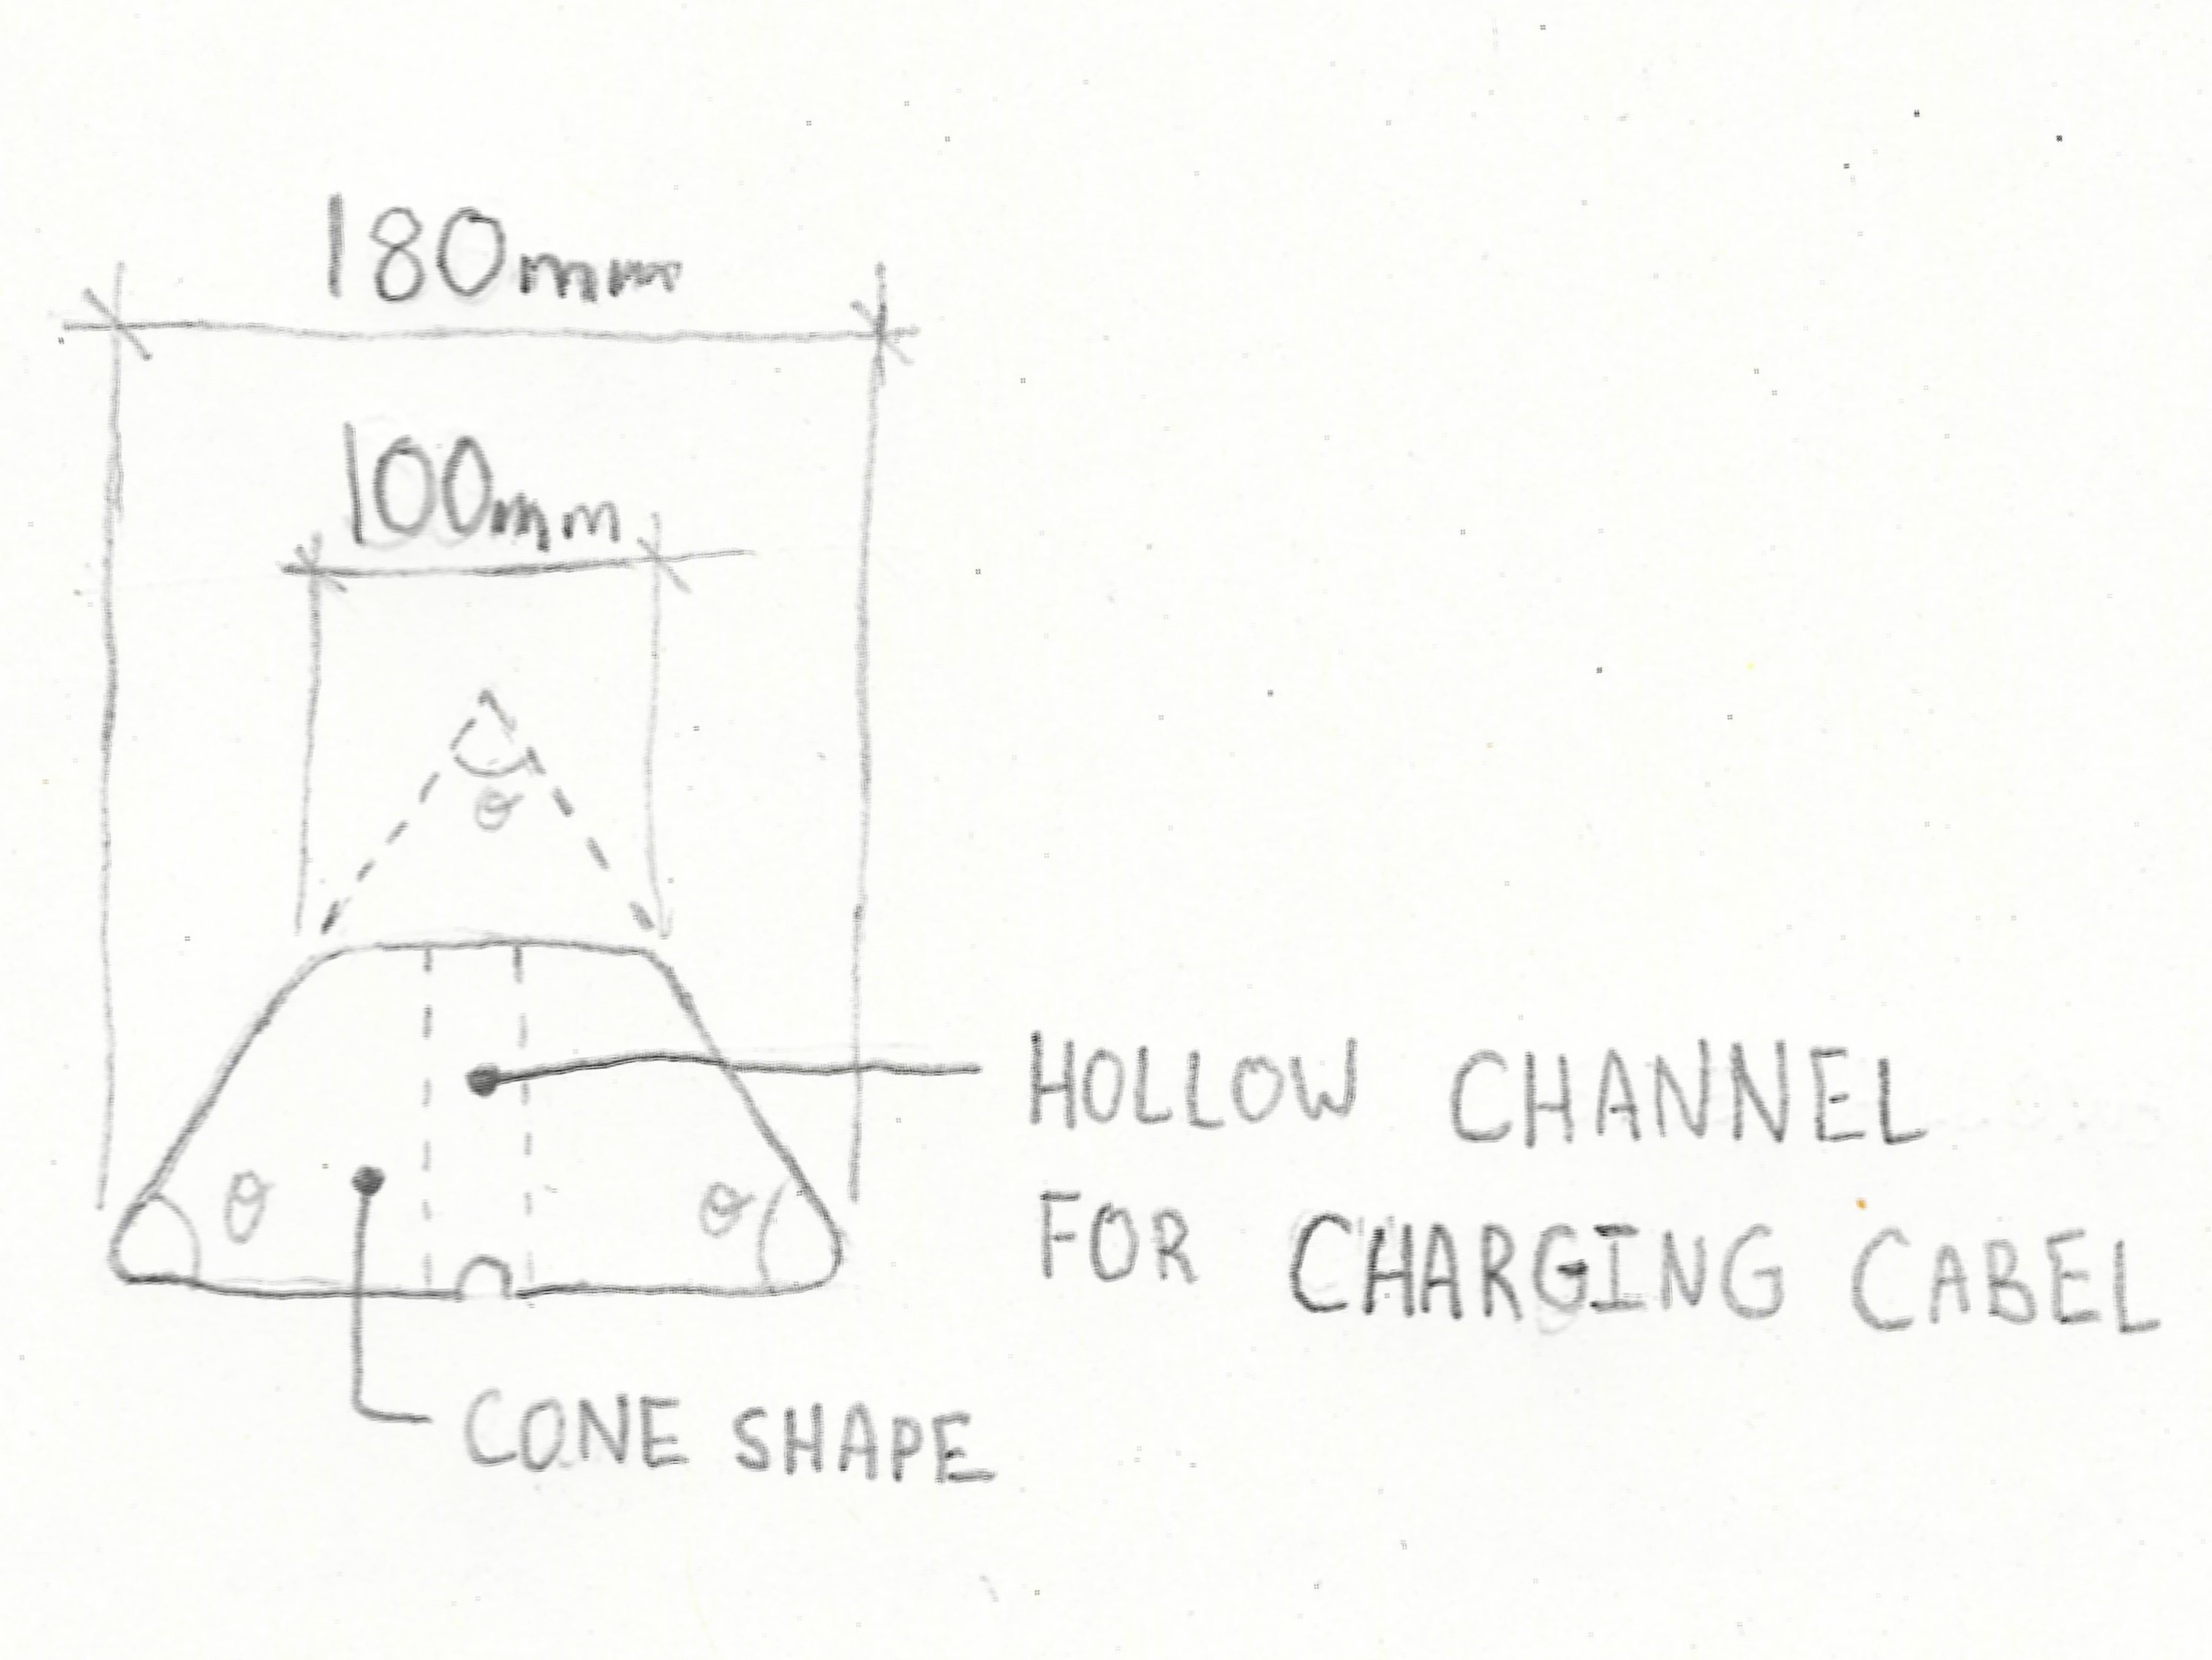 180mm
100mm
θ
θ
θ
HOLLOW CHANNEL
FOR CHARGING CABEL
CONE SHAPE